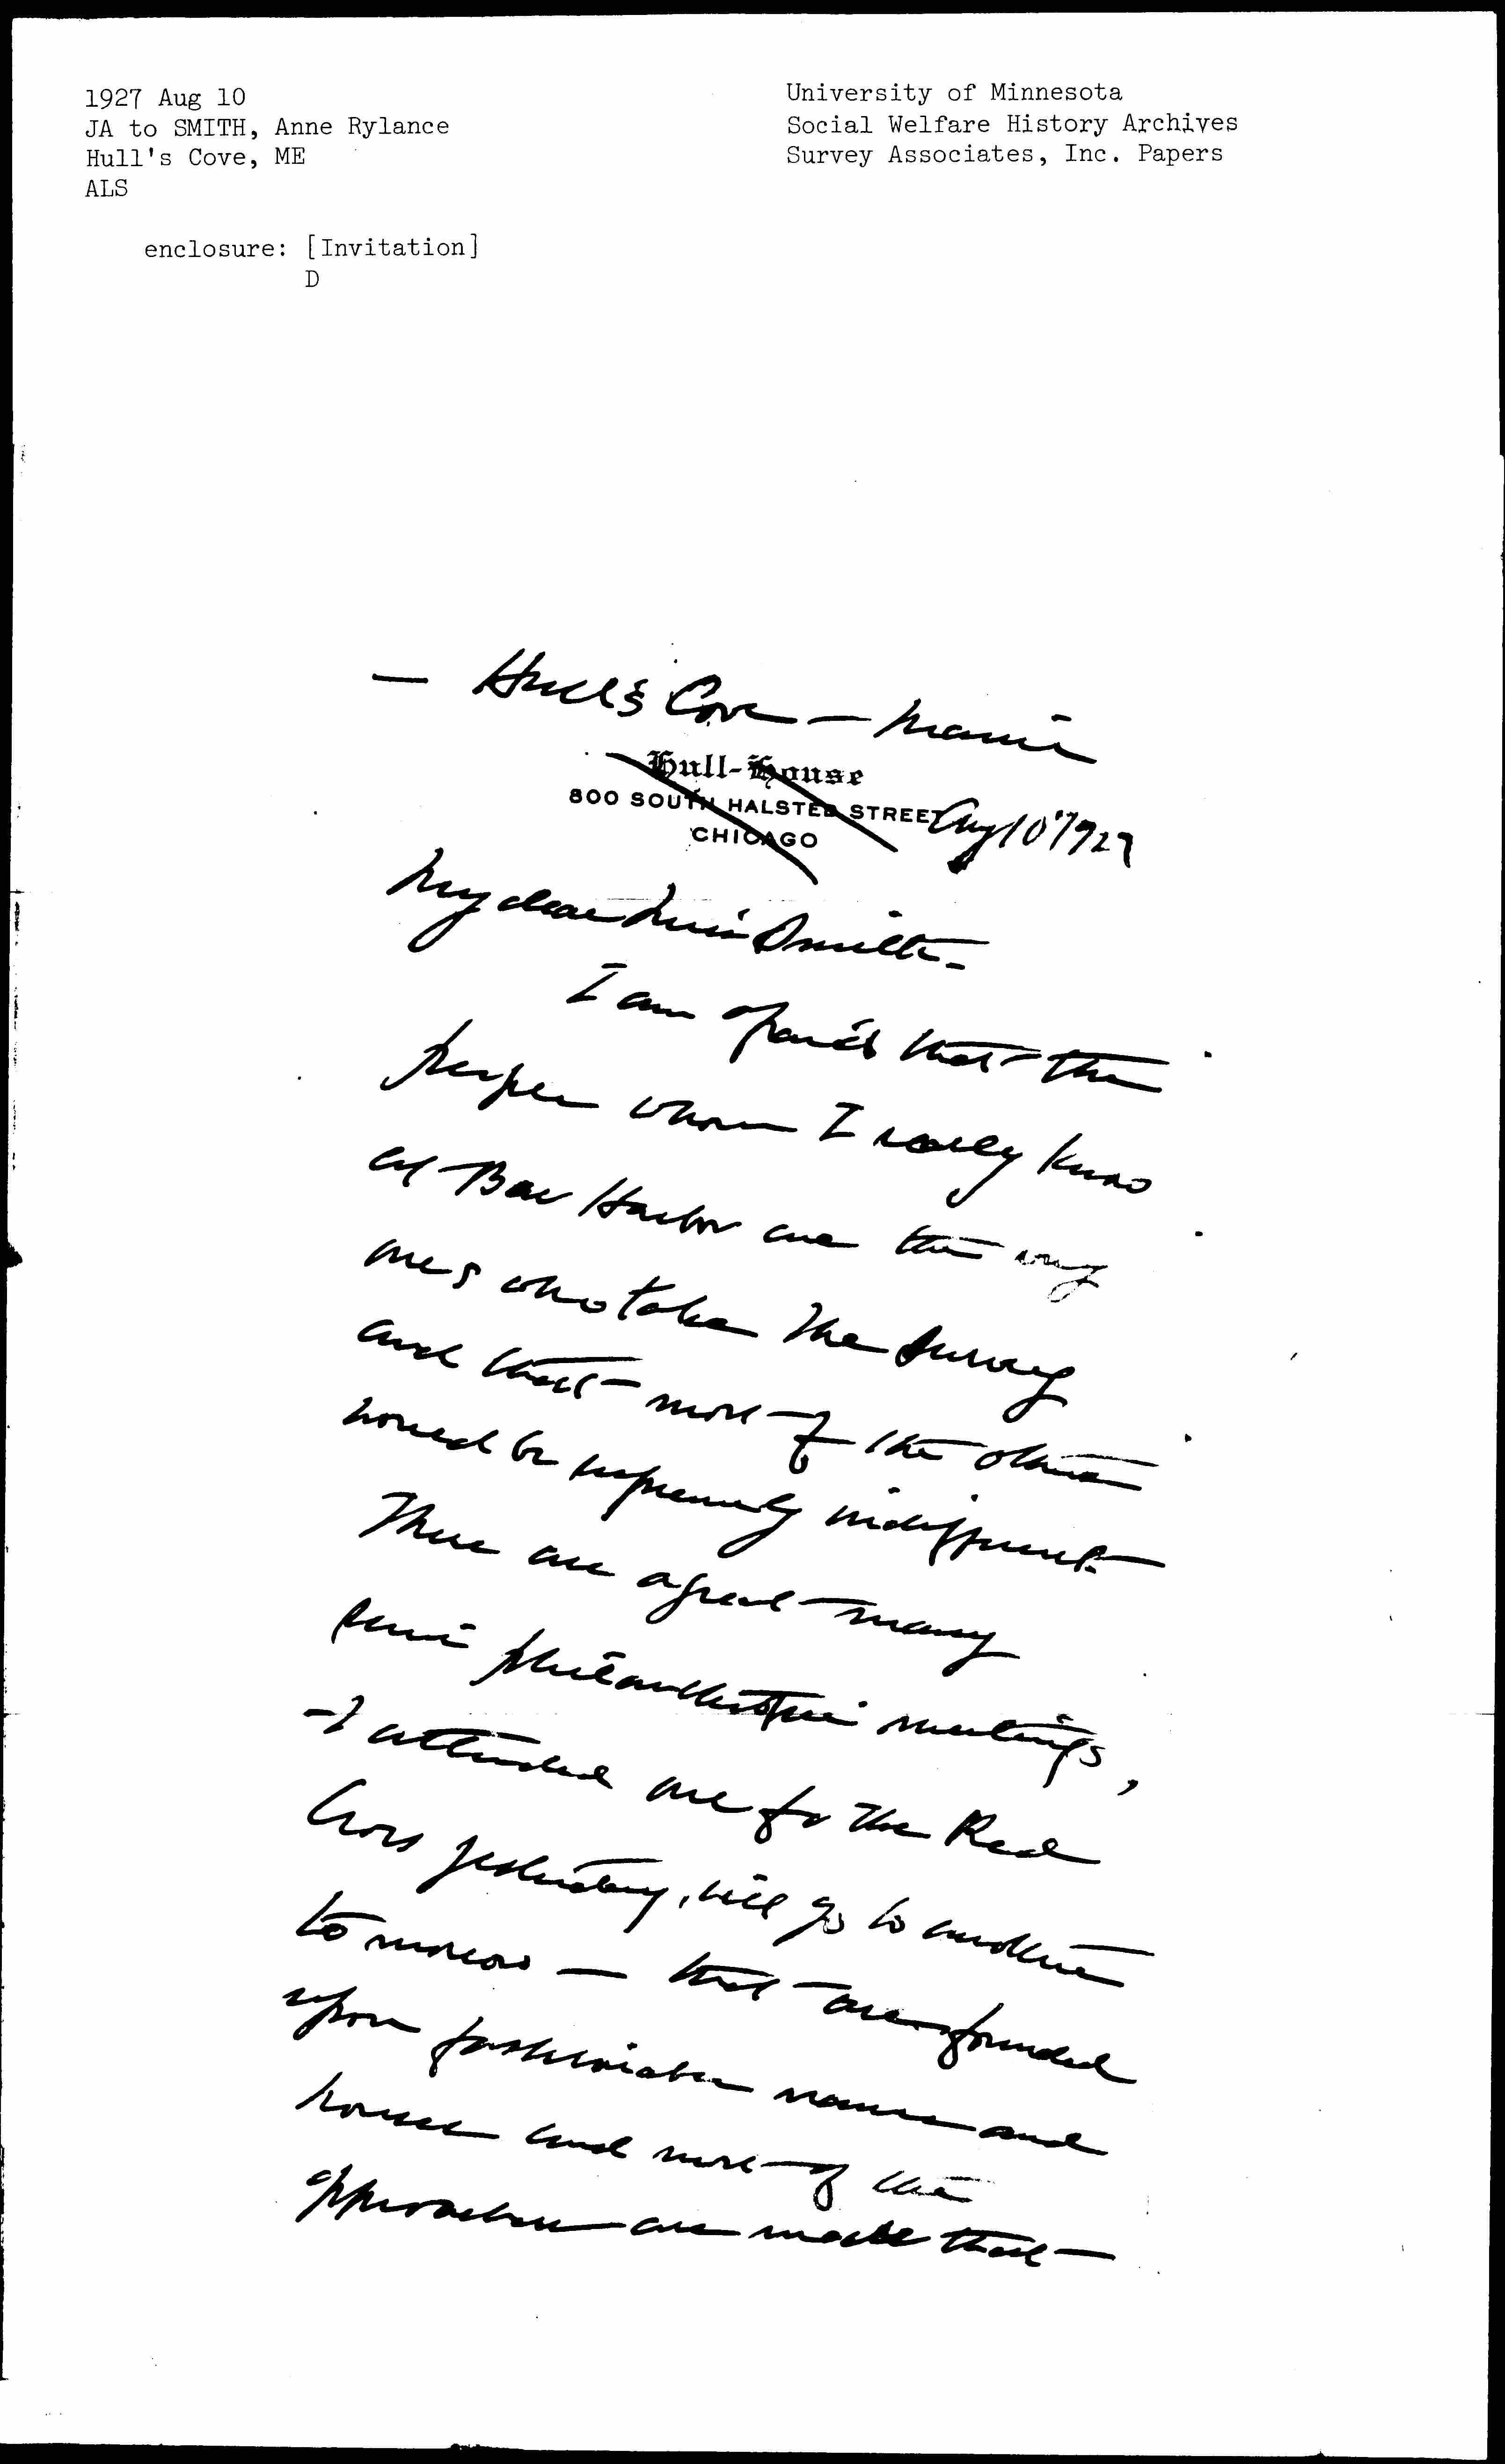 1927 Aug 10
JA to SMITH, Anne Rylance
Hull's Cove, ME
ALS
enclosure: [Invitation]
D
University of Minnesota
Social Welfare History Archives
Survey Associates, Inc. Papers
— Hull's Cove — Maine
Hull-House
800 SOUTH HALSTED STREET
CHICAGO
Aug 10" 1927
My dear Miss Smith—
I am afraid that the
people whom I really know
at Bar Harbor are the very
ones who take the Survey
and that most of the others
would be supremely indifferent.
There are a great many
semi philanthropic meetings,
— I attended one for the Red
Cross yesterday, will go to another
tomorrow — that are founded
upon fashionable names and
houses and most of the
approaches are made that